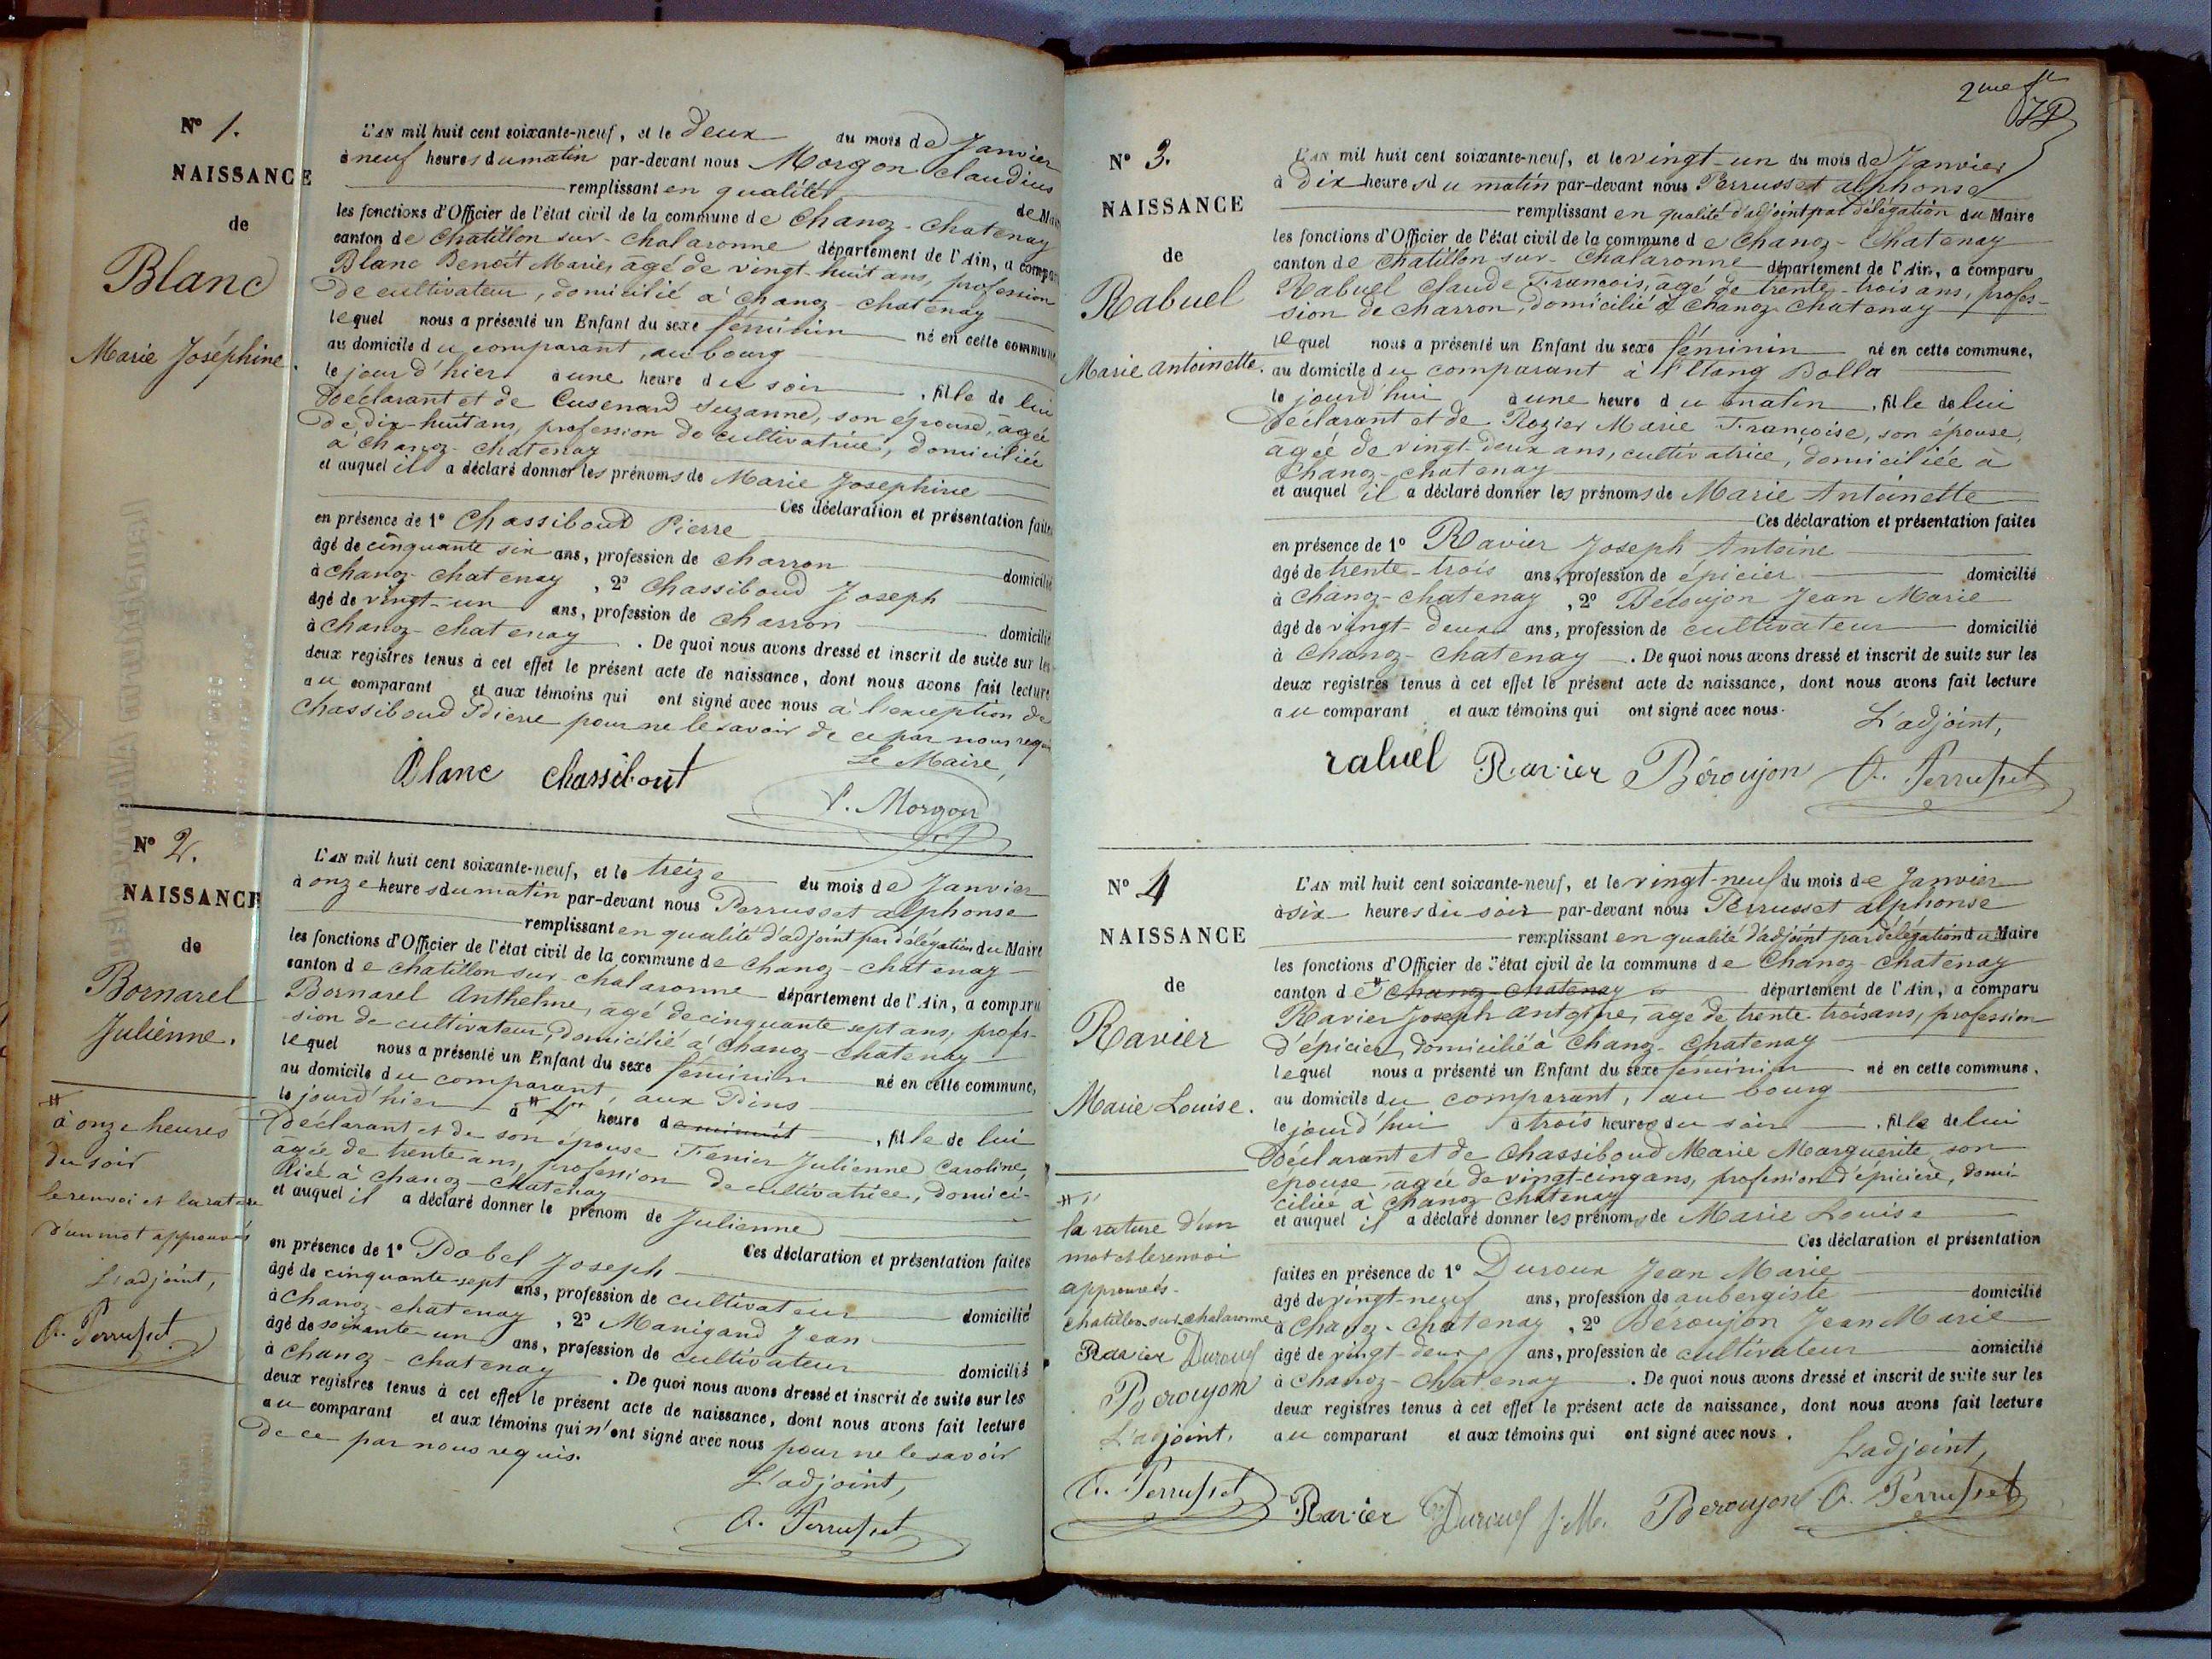 N° 1.
NAISSANCE
de
Blanc
Marie Joséphine.
L'AN mil huit cent soixante-neuf, et le deux du mois de Janvier
à neuf heures du matin par-devant nous Morgon Claudius
remplissant en qualité de Maire
les fonctions d'Officier de l'état civil de la commune de Chanoz-Chatenay
canton de Chatillon sur-Chalaronne département de l'Ain, a comparu
Blanc Benoît Marie, âgé de vingt-huit ans, profession
de cultivateur, domicilié à Chanoz-Chatenay
lequel nous a présenté un Enfant du sexe féminin né en cette commune
au domicile du comparant, au bourg
le jour d'hier à une heure du soir, fille de lui
Déclarant et de Cusenard Suzanne, son épouse, âgée
de dix-huit ans, profession de cultivatrice, domiciliée
à Chanoz-Chatenay
et auquel il a déclaré donner les prénoms de Marie Josephine
Ces déclaration et présentation faites
en présence de 1° Chassiboud Pierre
âgé de cinquante six ans, profession de charron domicilié
à Chanoz-Chatenay, 2° Chassiboud Joseph
âgé de vingt-un ans, profession de charron domicilié
à Chanoz-Chatenay. De quoi nous avons dressé et inscrit de suite sur les
deux registres tenus à cet effet le présent acte de naissance, dont nous avons fait lecture
au comparant et aux témoins qui ont signé avec nous à l'exception de
Chassiboud Pierre pour ne le savoir de ce par nous requis
Le Maire,
Blanc Chassibout
C. Morgon
N° 2.
NAISSANCE
de
Bornarel
Julienne.
#
à onze heures
du soir
le renvoi et la rature
d'un mot approuvés
L'adjoint,
A. Perrusset
L'AN mil huit cent soixante-neuf, et le treize du mois de Janvier
à onze heures du matin par-devant nous Perrusset alphonse
remplissant en qualité d'adjoint par délégation du Maire
les fonctions d'Officier de l'état civil de la commune de Chanoz-Chatenay
canton de Chatillon sur-Chalaronne département de l'Ain, a comparu
Bornarel Anthelme, âgé de cinquante sept ans, profes-
sion de cultivateur, domicilié à Chanoz-Chatenay
lequel nous a présenté un Enfant du sexe féminin né en cette commune,
au domicile du comparant, aux Pins
le jour d'hier à # heure de minuit, fille de lui
Déclarant et de son épouse Fenier Julienne Caroline,
âgée de trente ans, profession de cultivatrice, domici-
liée à Chanoz-Chatenay
et auquel il a déclaré donner le prénom de Julienne
Ces déclaration et présentation faites
en présence de 1° Bobel Joseph
âgé de cinquante-sept ans, profession de cultivateur domicilié
à Chanoz-Chatenay, 2° Manigand Jean
âgé de soixante-un ans, profession de cultivateur domicilié
à Chanoz-Chatenay. De quoi nous avons dressé et inscrit de suite sur les
deux registres tenus à cet effet le présent acte de naissance, dont nous avons fait lecture
au comparant et aux témoins qui n'ont signé avec nous pour ne le savoir
de ce par nous requis.
L'adjoint,
A. Perrusset
2me
N° 3.
NAISSANCE
de
Rabuel
Marie Antoinette.
L'AN mil huit cent soixante-neuf, et le vingt-un du mois de Janvier
à Dix heures du matin par-devant nous Perrusset alphonse
remplissant en qualité d'adjoint par délégation du Maire
les fonctions d'Officier de l'état civil de la commune de Chanoz-Chatenay
canton de Chatillon-sur-Chalaronne département de l'Ain, a comparu
Rabuel Claude François, âgé de trente-trois ans, profes-
sion de charron, domicilié à Chanoz-Chatenay
lequel nous a présenté un Enfant du sexe féminin né en cette commune,
au domicile du comparant à l'Etang Bolla
le jourd'hui à une heure du matin, fille de lui
Déclarant et de Rozier Marie Françoise, son épouse,
âgée de vingt-deux ans, cultivatrice, domiciliée à
Chanoz-Chatenay
et auquel il a déclaré donner les prénoms de Marie Antoinette
Ces déclaration et présentation faites
en présence de 1° Ravier Joseph Antoine
âgé de trente-trois ans, profession de épicier domicilié
à Chanoz-Chatenay, 2° Béroujon Jean Marie
âgé de vingt-deux ans, profession de cultivateur domicilié
à Chanoz-Chatenay. De quoi nous avons dressé et inscrit de suite sur les
deux registres tenus à cet effet le présent acte de naissance, dont nous avons fait lecture
au comparant et aux témoins qui ont signé avec nous.
L'adjoint,
rabuel Ravier Béroujon A. Perrusset
N° 4
NAISSANCE
de
Ravier
Marie Louise.
#
la rature d'un
mot et le renvoi
approuvés.
Chatillon-sur-Chalaronne
Ravier Duroux
Beroujon
L'adjoint,
A. Perrusset
L'AN mil huit cent soixante-neuf, et le vingt-neuf du mois de Janvier
à six heures du soir par-devant nous Perrusset alphonse
remplissant en qualité d'adjoint par délégation du Maire
les fonctions d'Officier de l'état civil de la commune de Chanoz-Chatenay
canton de # Chanoz-Chatenay département de l'Ain, a comparu
Ravier Joseph Antoine, âgé de trente-trois ans, profession
d'épicier, domicilié à Chanoz-Chatenay
lequel nous a présenté un Enfant du sexe féminin né en cette commune.
au domicile du comparant, au bourg
le jourd'hui à trois heures du soir, fille de lui
Déclarant et de Chassiboud Marie Marguerite, son
épouse, agée de vingt-cinq ans, profession d'épicière, domi-
ciliée à Chanoz-Chatenay
et auquel il a déclaré donner les prénoms de Marie Louise
Ces déclaration et présentation
faites en présence de 1° Duroux Jean Marie
âgé de vingt-neuf ans, profession de aubergiste domicilié
à Chanoz-Chatenay, 2° Béroujon Jean Marie
âgé de vingt-deux ans, profession de cultivateur domicilié
à Chanoz-Chatenay. De quoi nous avons dressé et inscrit de suite sur les
deux registres tenus à cet effet le présent acte de naissance, dont nous avons fait lecture
au comparant et aux témoins qui ont signé avec nous.
L'adjoint,
Ravier Duroux J.M. Beroujon A. Perrusset